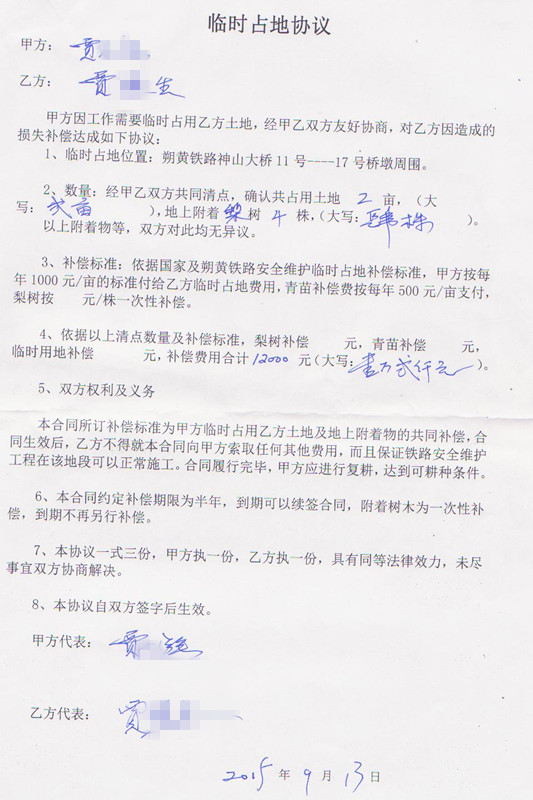 临时占地协议
甲方：贾
乙方：贾 生
甲方因工作需要临时占用乙方土地，经甲乙双方友好协商，对乙方因造成的
损失补偿达成如下协议：
1、临时占地位置：朔黄铁路神山大桥11号----17号桥墩周围。
2、数量：经甲乙双方共同清点，确认共占用土地 2 亩，（大
写：弍亩 ），地上附着梨树 4 株，（大写：肆株 ）。
以上附着物等，双方对此均无异议。
3、补偿标准：依据国家及朔黄铁路安全维护临时占地补偿标准，甲方按每
年1000元/亩的标准付给乙方临时占地费用，青苗补偿费按每年500元/亩支付，
梨树按 元/株一次性补偿。
4、依据以上清点数量及补偿标准，梨树补偿 元，青苗补偿 元，
临时用地补偿 元，补偿费用合计12000元（大写：壹万弍仟元 ）。
5、双方权利及义务
本合同所订补偿标准为甲方临时占用乙方土地及地上附着物的共同补偿，合
同生效后，乙方不得就本合同向甲方索取任何其他费用，而且保证铁路安全维护
工程在该地段可以正常施工。合同履行完毕，甲方应进行复耕，达到可耕种条件。
6、本合同约定补偿期限为半年，到期可以续签合同，附着树木为一次性补
偿，到期不再另行补偿。
7、本协议一式三份，甲方执一份，乙方执一份，具有同等法律效力，未尽
事宜双方协商解决。
8、本协议自双方签字后生效。
甲方代表：贾
乙方代表：贾
2015年9月13日